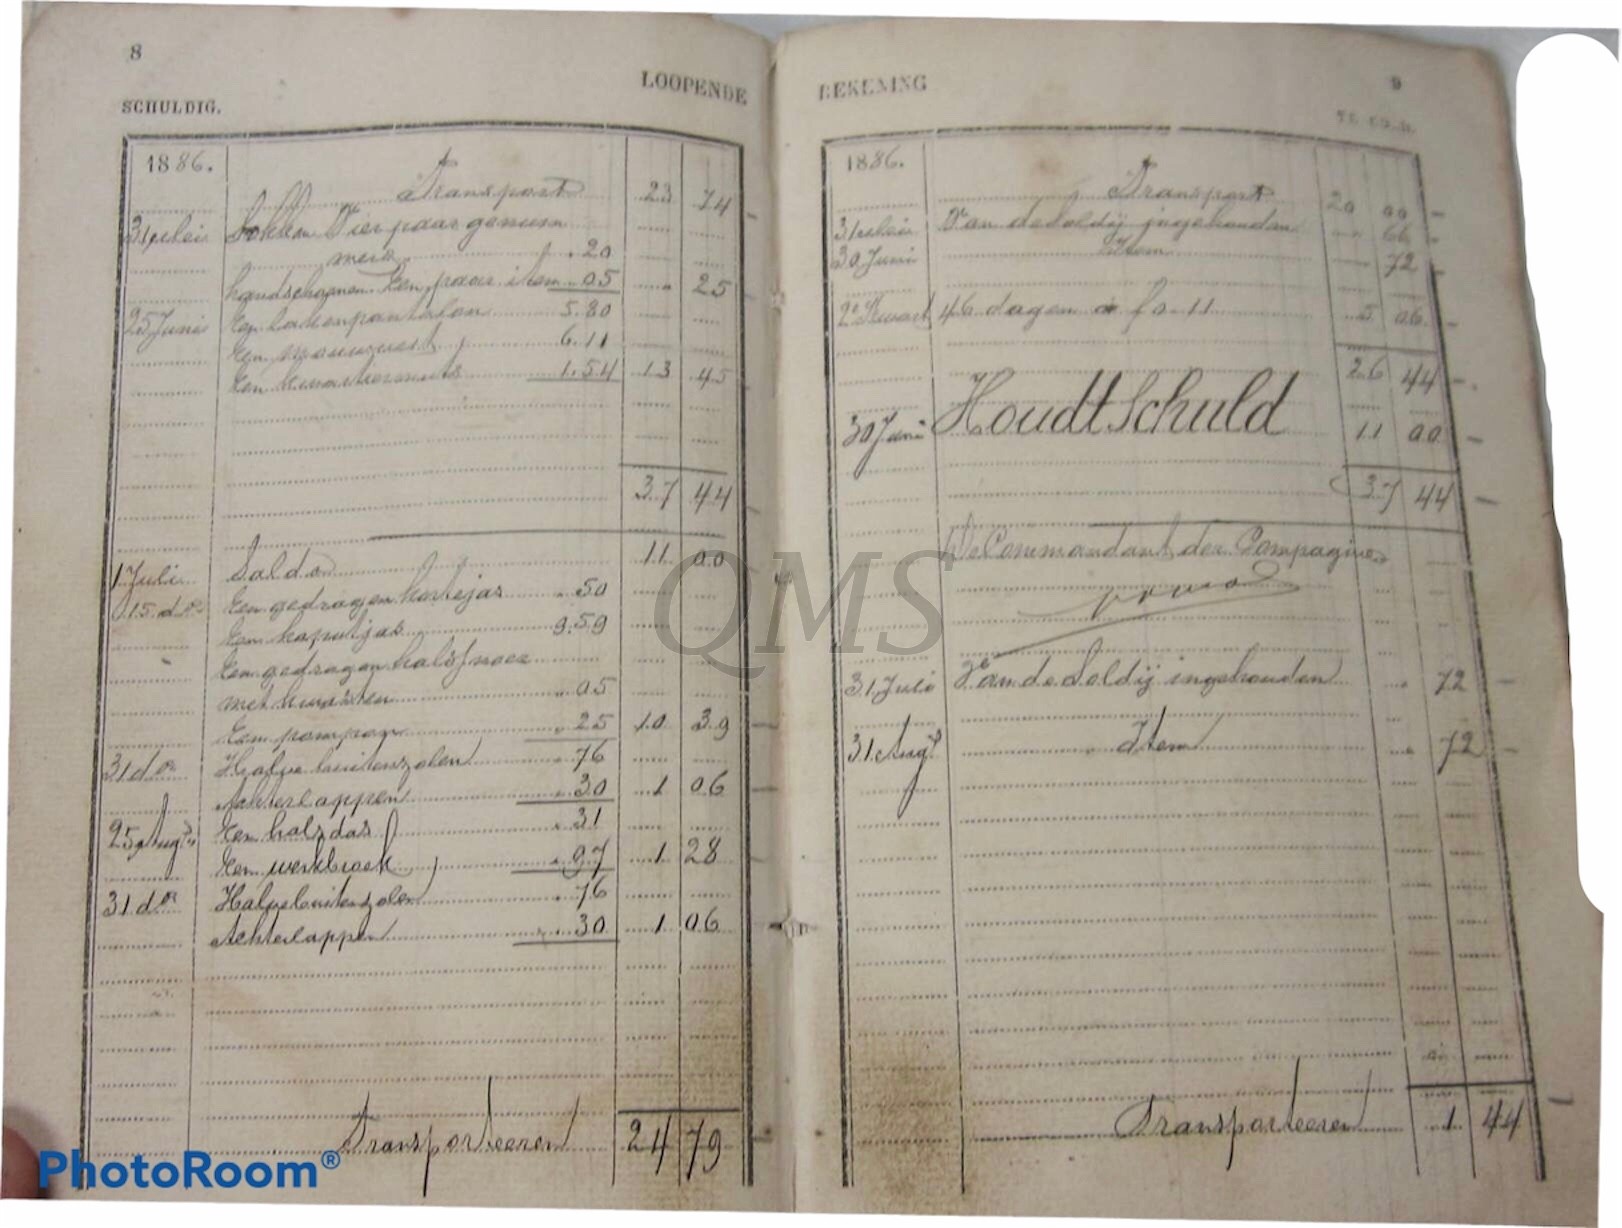 8
LOOPENDE
SCHULDIG.
1886.
Transport 23 74
31 Mei Sokken Vier paar genum
merd . 20
handschoenen Een paar item . 05 . 25
25 Juni Een lakenpantalon 5.80
Een mouwvest 6.11
Een kwartiermuts 1.54 13 45
37 44
1 Juli Saldo 11 00
15 do Een gedragen kortejas . 50
Een kapotjas 9.59
Een gedragen halssnoer
met kwasten . 05
Een pompon . 25 10 39
31 do Halve buitenzolen . 76
Achterlappen . 30 1 06
25 Augs Een halsdas . 31
Een werkbroek . 97 1 28
31 do Halve buitenzolen . 76
Achterlappen . 30 1 06
Transporteeren 24 79
REKENING
9
1886.
Transport 20 00
31 Mei Van de Soldij ingehouden 66
30 Juni Item 72
2e Kwart 46 dagen à f 0.11 5 06
26 44
30 Juni Houdt Schuld 11 00
37 44
De Commandant der Compagnie
31 Juli Van de Soldij ingehouden . 72
31 Augs Item . 72
Transporteeren 1 44
QMS
PhotoRoom®